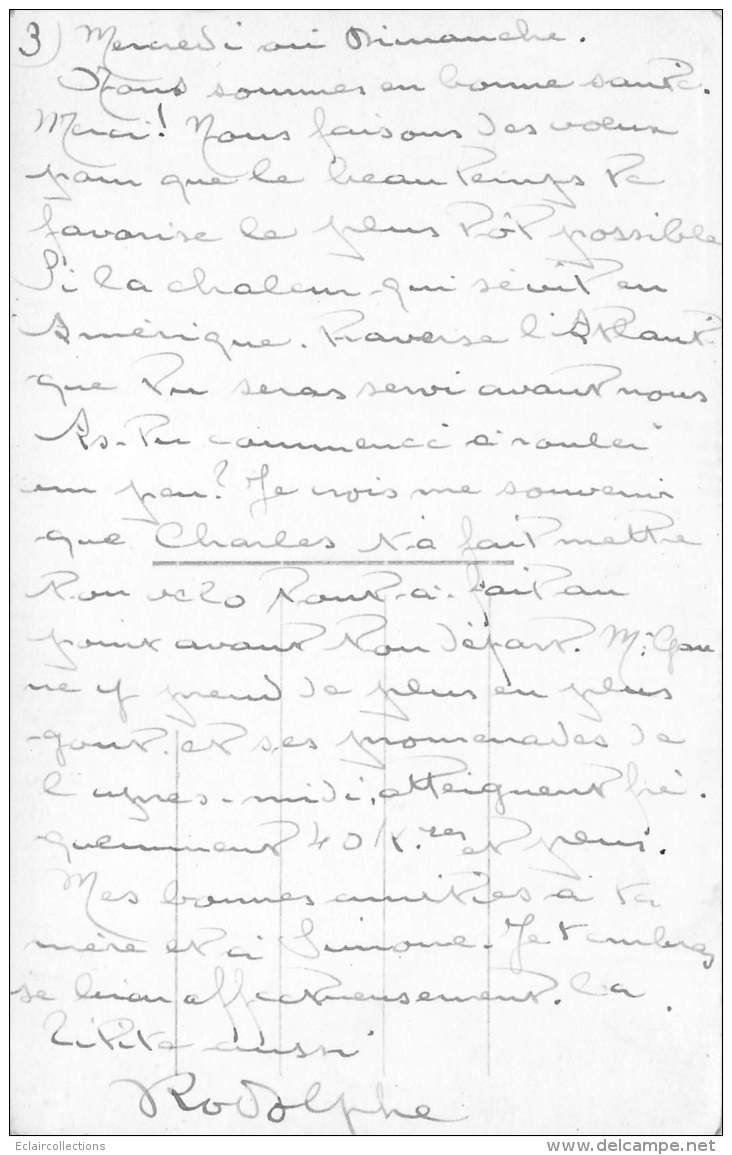 3) Mercredi ou Dimanche.
Nous sommes en bonne santé.
Merci! Nous faisons des vœux
pour que le beau temps te
favorise le plus tôt possible
Si la chaleur qui sévit en
Amérique. traverse l'Atlanti
que tu seras servi avant nous
As-tu commencé à rouler
un peu? Je crois me souvenir
que Charles t'a fait mettre
ton vélo tout-à-fait au
point avant ton départ.
ne y prend de plus en plus
goût. et ses promenades de
l'après-midi, atteignent fré.
quemment 40 K.res et plus.
Mes bonnes amitiés à ta
mère et à Simone. Je t'embras
se bien affectueusement. La
Titite aussi
Rodolphe
Eclaircollections
www.delcampe.net